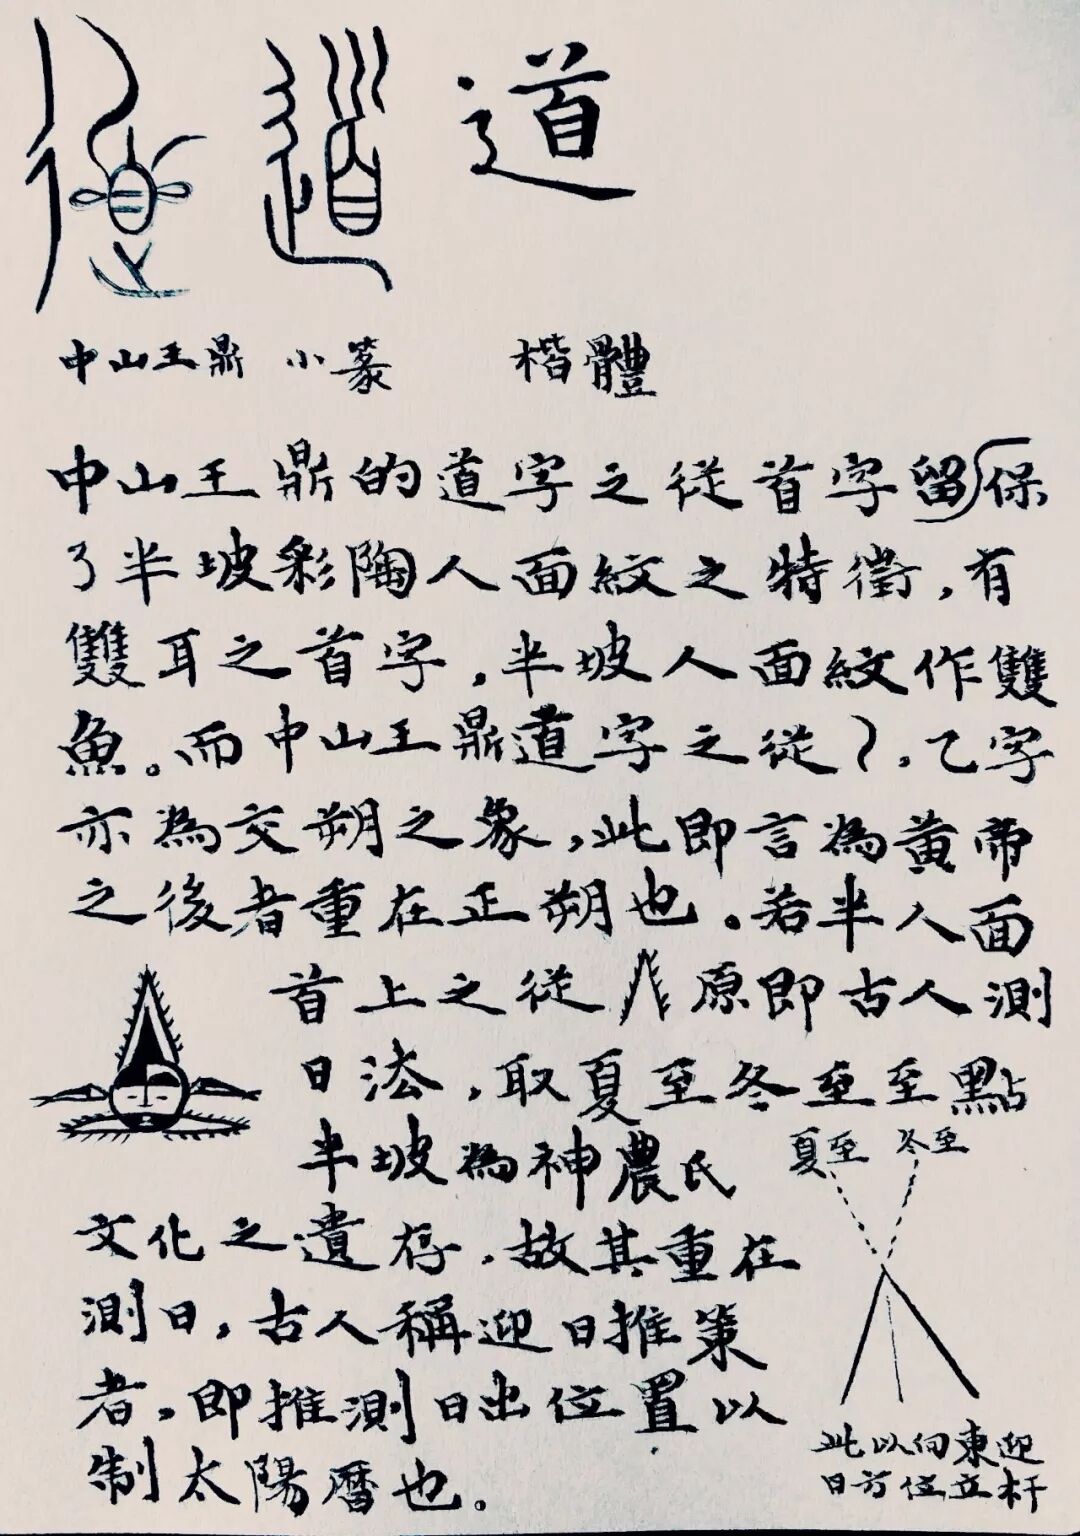 道
中山王鼎 小篆 楷體
中山王鼎的道字之從首字留保
了半坡彩陶人面紋之特徵，有
雙耳之首字，半坡人面紋作雙
魚。而中山王鼎道字之從，乙字
亦為交朔之象，此即言為黃帝
之後者重在正朔也。若半人面
首上之從 原即古人測
日法，取夏至冬至至點
半坡為神農氏
文化之遺存，故其重在
測日，古人稱迎日推策
者，即推測日出位置以
制太陽曆也。
夏至 冬至
此以向東迎
日方位立杆